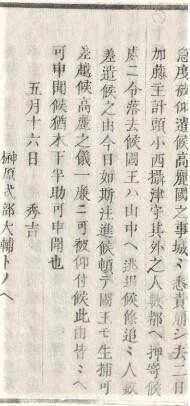 急度被仰遣候高麗國之事城ミ悉責崩シ去二日
加藤主計頭小西攝津守其外之人數都ヘ押寄候
處ニ令落去候國王ハ山中ヘ迯退候條追ミ人數
差遣候之由今日如斯注進候頓テ國王モ生捕可
差越候高麗之儀一廉ニ可被仰付候此由皆ミヘ
可申聞候猶木下半助可申聞也
五月十六日　秀吉
榊原式部大輔トノヘ